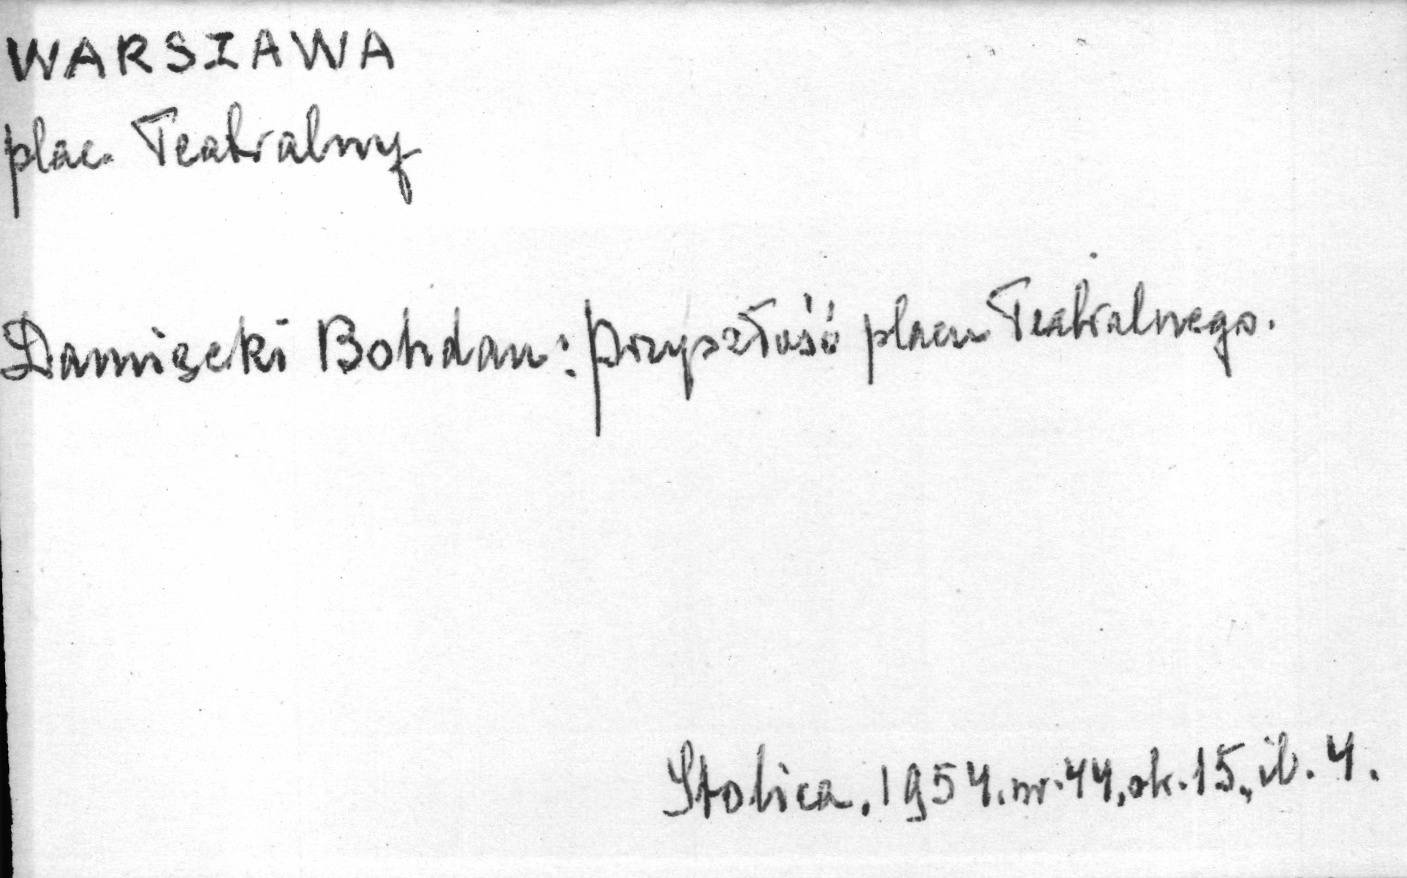 WARSZAWA
plac Teatralny
Damięcki Bohdan: Przyszłość placu Teatralnego.
Stolica, 1954, nr. 44, ok. 15, il. 4.